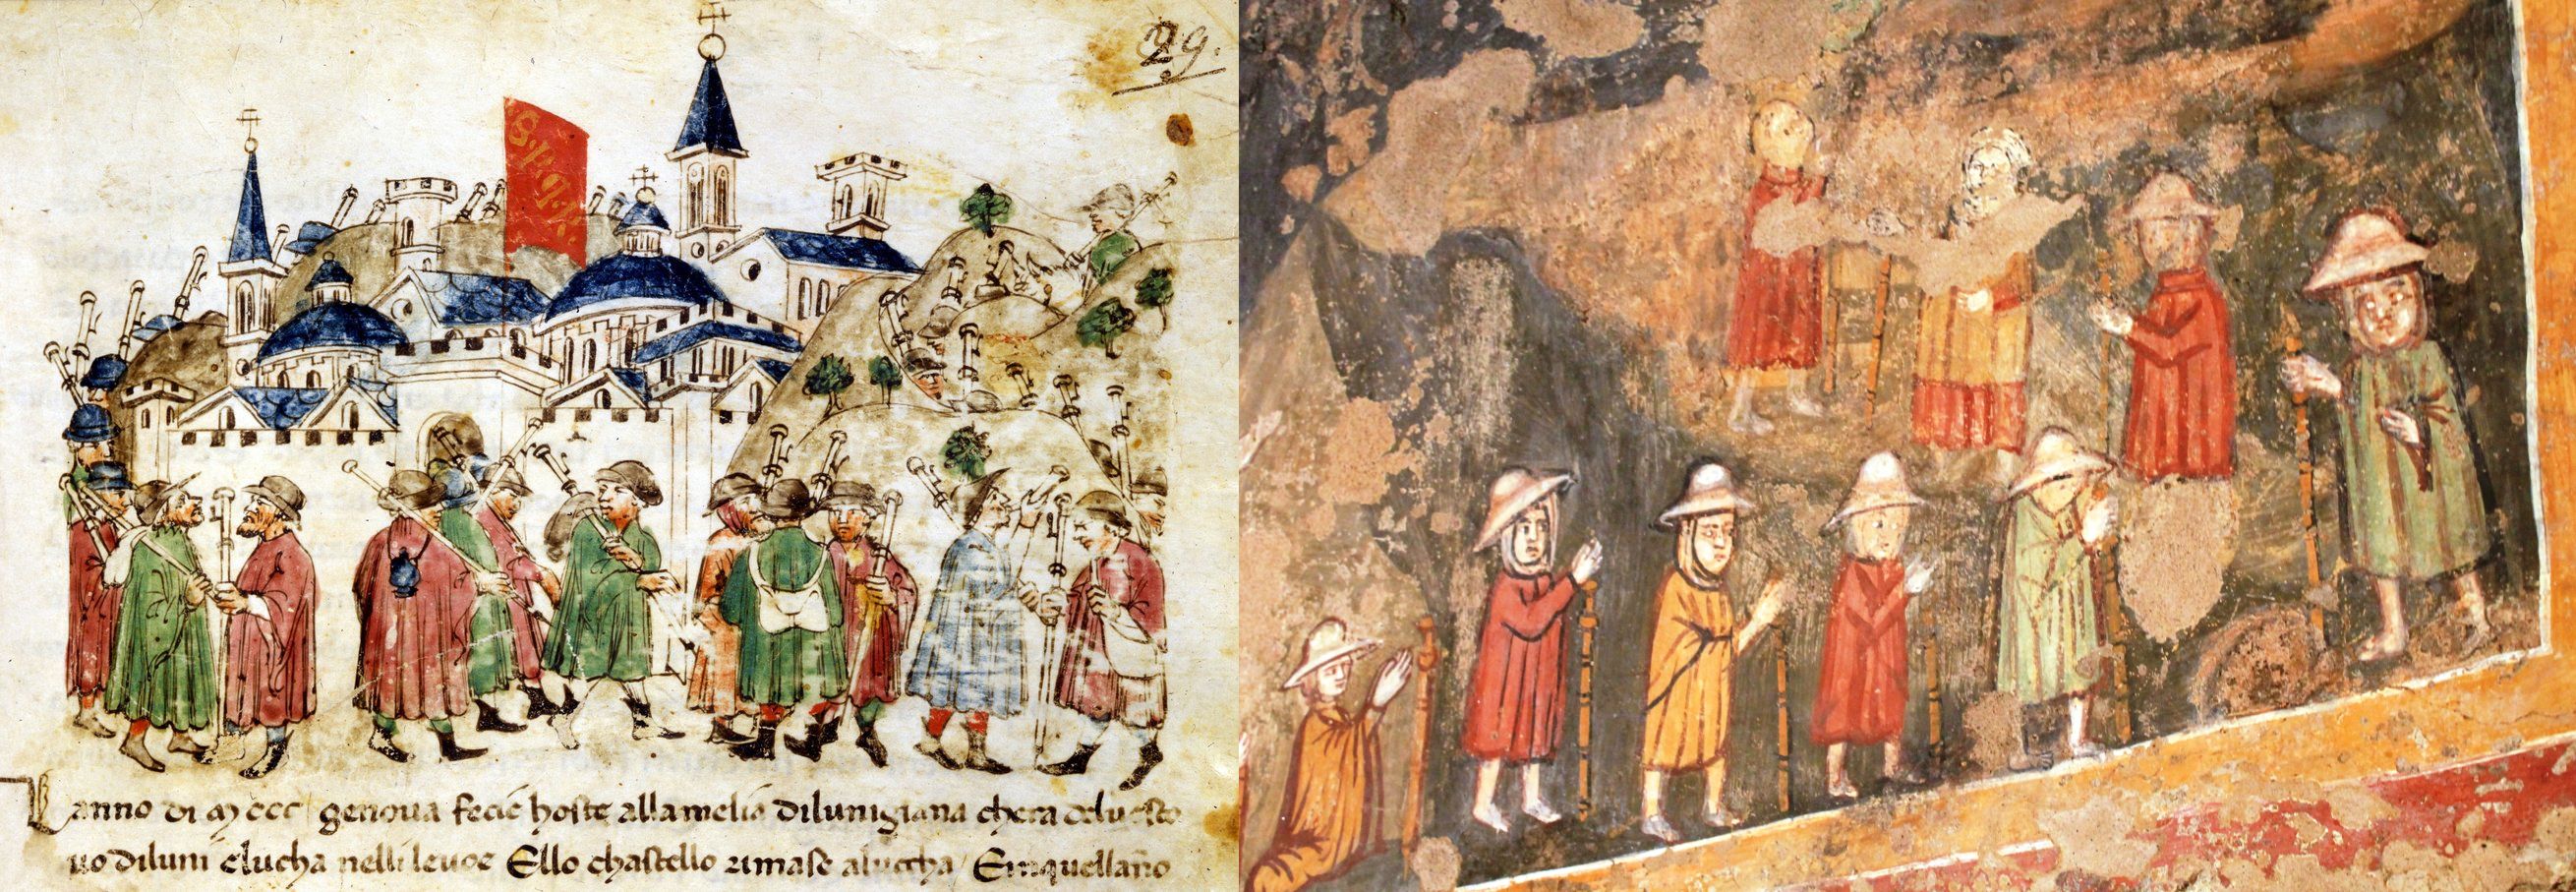 29.
S.P.Q.R.
Lanno di Mccc / genoua fecie hoste allamelia dilunigiana chera deluesco
uo diluni elucha nelli leuoe Ello chastello rimase aluccha / Einquellaño